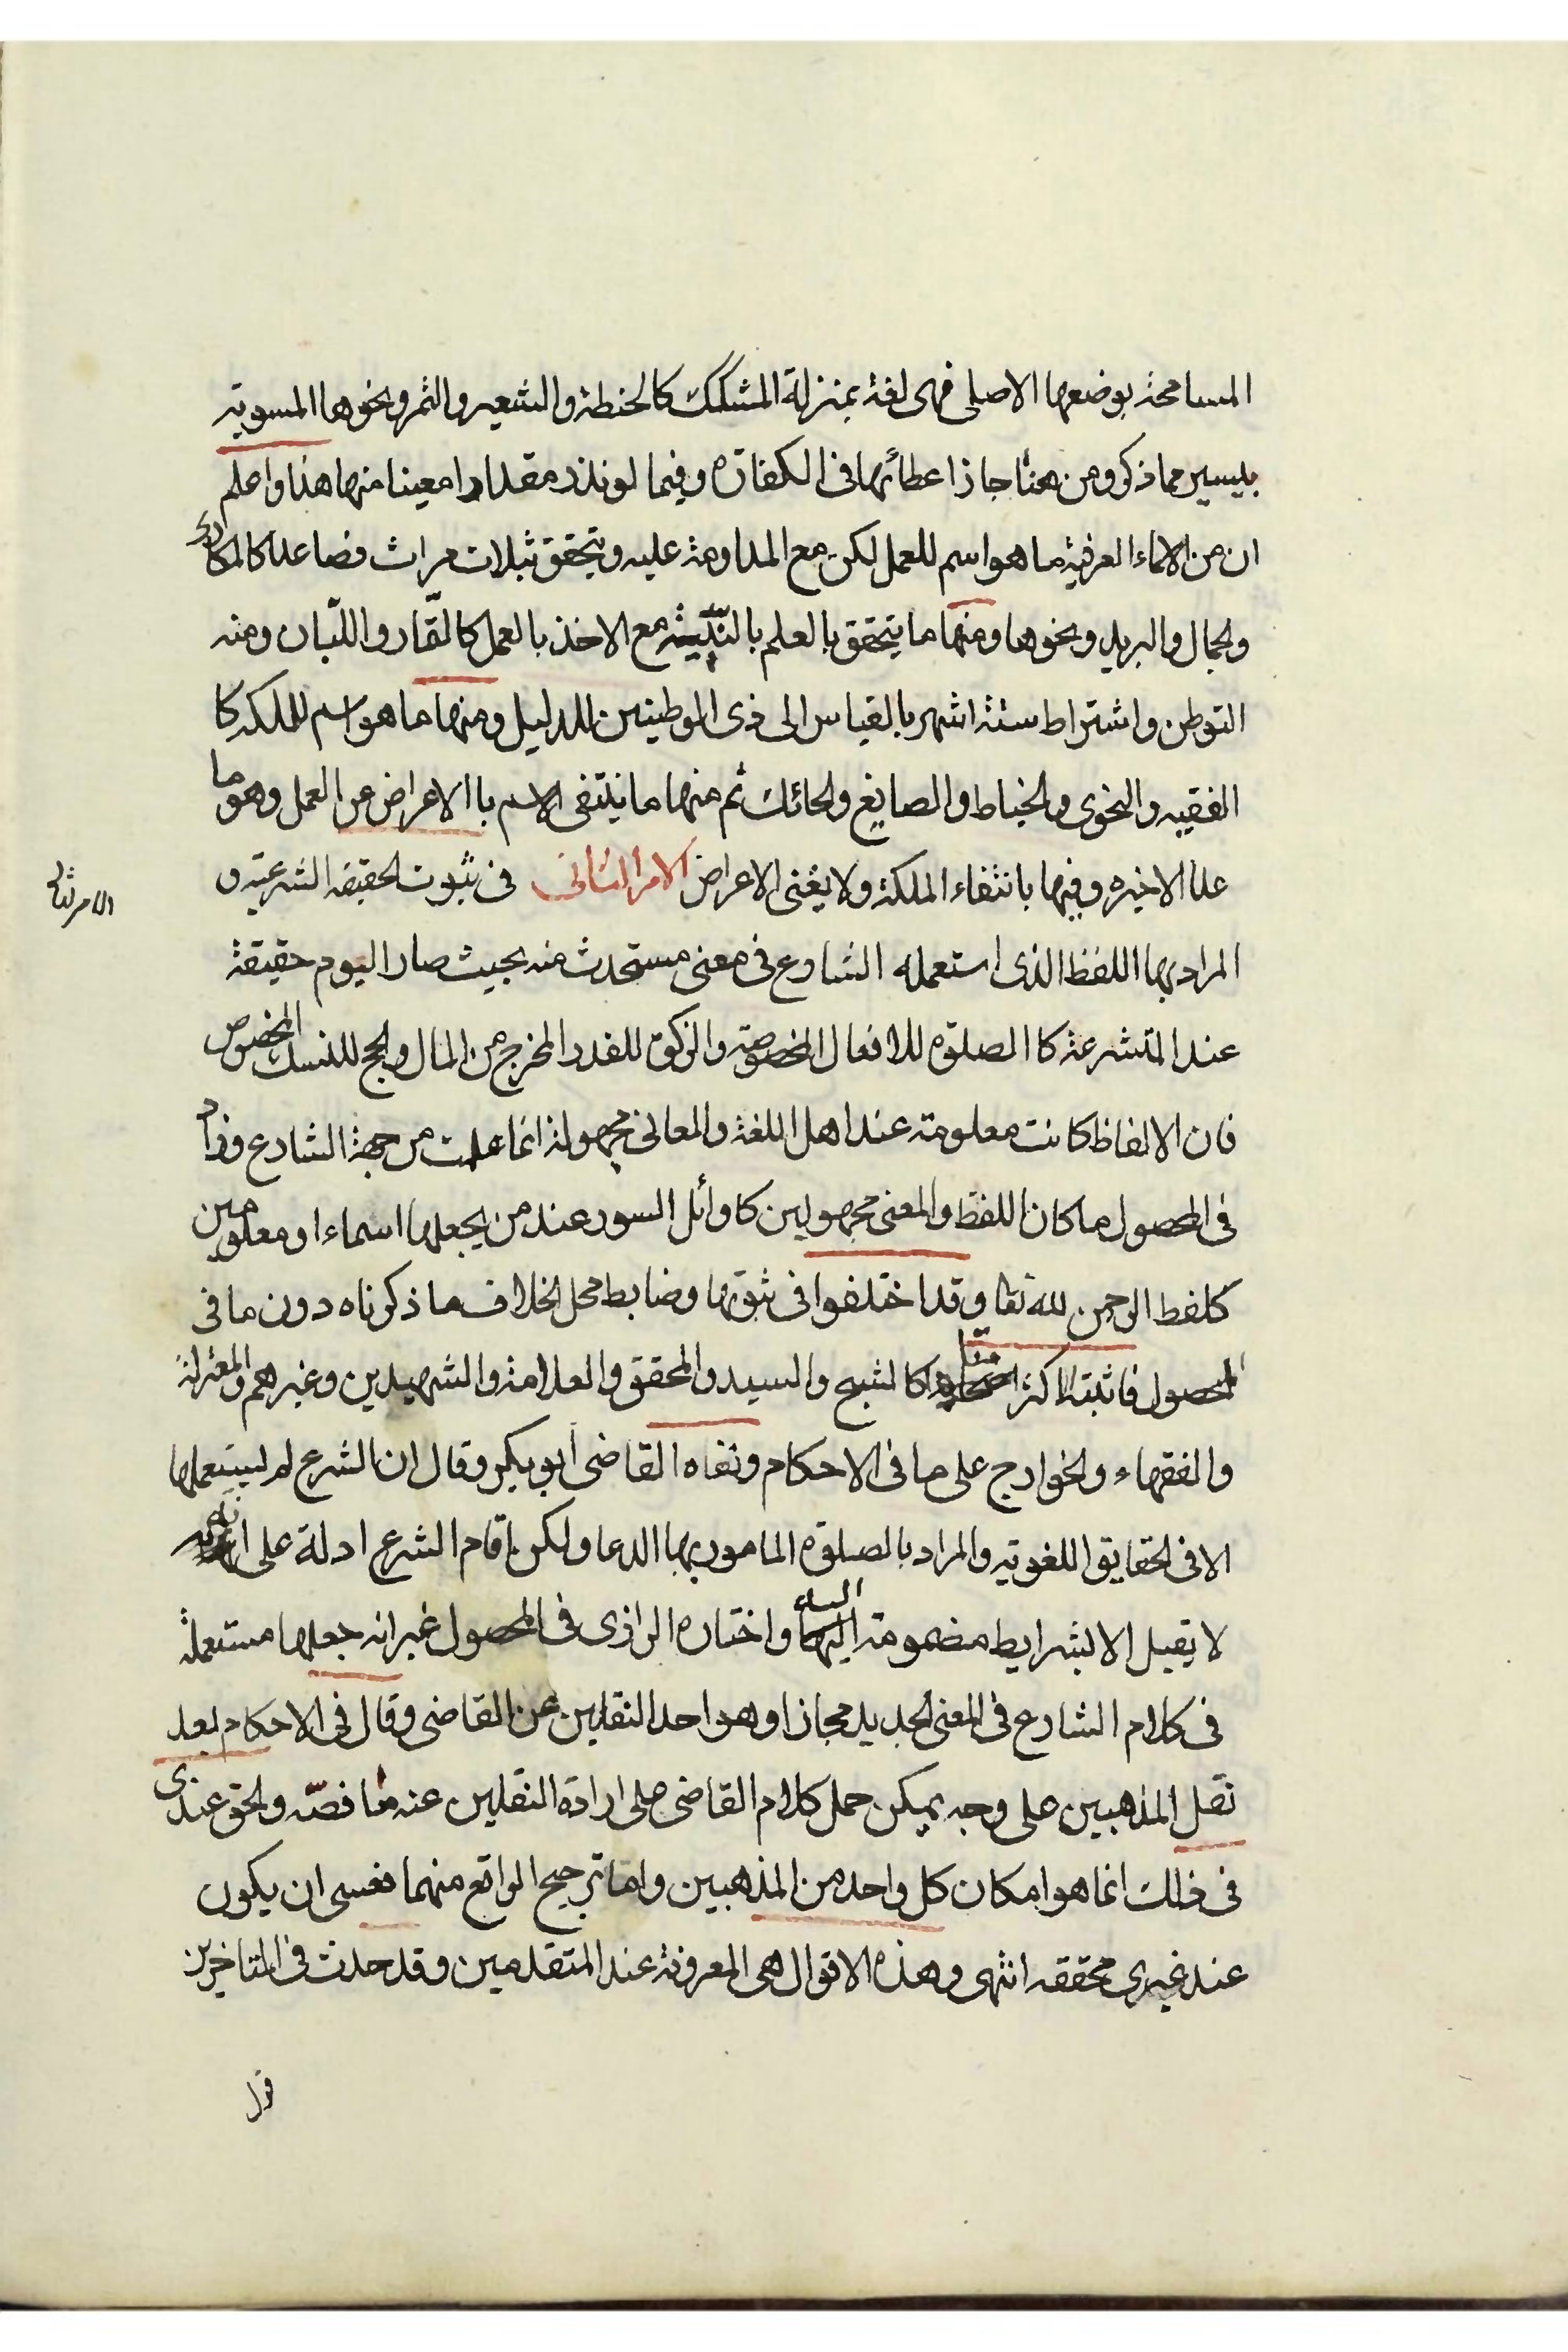 المسامحة بوضعها الاصلى فهى لغة بمنزلة المشكك كالحنطة والشعير والتمر ونحوها المسوية
بيسير مما ذكر ومن هنا جاز اعطائها فى الكفارة وفيما لو نذر مقدارا معينا منها هذا واعلم
ان من الاسماء العرفية ما هو اسم للعمل لكن مع المداومة عليه ويتحقق بثلاث مرات فصاعدا كالمكارى
والجمال والبريد ونحوها ومنها ما يتحقق بالعلم بالنية مع الاخذ بالعمل كالتمار واللبان ومنه
التوطن واشتراط ستة اشهر بالقياس الى ذى الموطنين للدليل ومنها ما هو اسم للملكه كا
الفقيه والنحوى والخياط والصايغ والحائك ثم منها ما ينتفى الاسم باالاعراض عن العمل وهو ما
عدا الاخيره وفيها بانتفاء الملكة ولا يغنى الاعراض الامر الثانى فى ثبوت الحقيقه الشرعيه و
الامر الثانى
المراد بها اللفظ الذى استعمله الشارع فى معنى مستحدث منه بحيث صار اليوم حقيقة
عند المتشرعة كا الصلوة للافعال المخصوصه والزكوة للقدر المخرج من المال والحج للنسك المخصوص
فان الالفاظ كانت معلومة عند اهل اللغة والمعانى مجهولة انما علمت من جهة الشارع وزاد
فى المحصول ما كان اللفظ والمعنى مجهولين كاوائل السور عند من يجعلها اسماء او معلومين
كلفظ الرحمن لله تعا وقد اختلفوا فى ثبوتها وضابط محل الخلاف ما ذكرناه دون ما فى
المحصول فاثبته اكثر منا كالشيخ والسيد والمحقق والعلامة والشهيدين وغيرهم والمعتزلة
والفقهاء والخوارج على ما فى الاحكام ونفاه القاضى أبو بكر وقال ان الشرع لم يستعملها
الا فى الحقايق اللغوية والمراد بالصلوة المامور بها الدعا ولكن اقام الشرع ادلة على انه
لا يقبل الا بشرايط مضمومة اليها اليه واختاره الرازى فى المحصول غير انه جعلها مستعملة
فى كلام الشارع فى المعنى الجديد مجازا وهو احد النقلين عن القاضى وقال فى الاحكام بعد
نقل المذهبين على وجه يمكن حمل كلام القاضى على ارادة النقلين عنه ما نصّه والحق عندى
فى ذلك انما هو امكان كل واحد من المذهبين واما ترجيح الواقع منهما فعسى ان يكون
عند غيرى محققه انتهى وهذه الاقوال هى المعروفة عند المتقدمين وقد حدث فى المتاخرين
قول